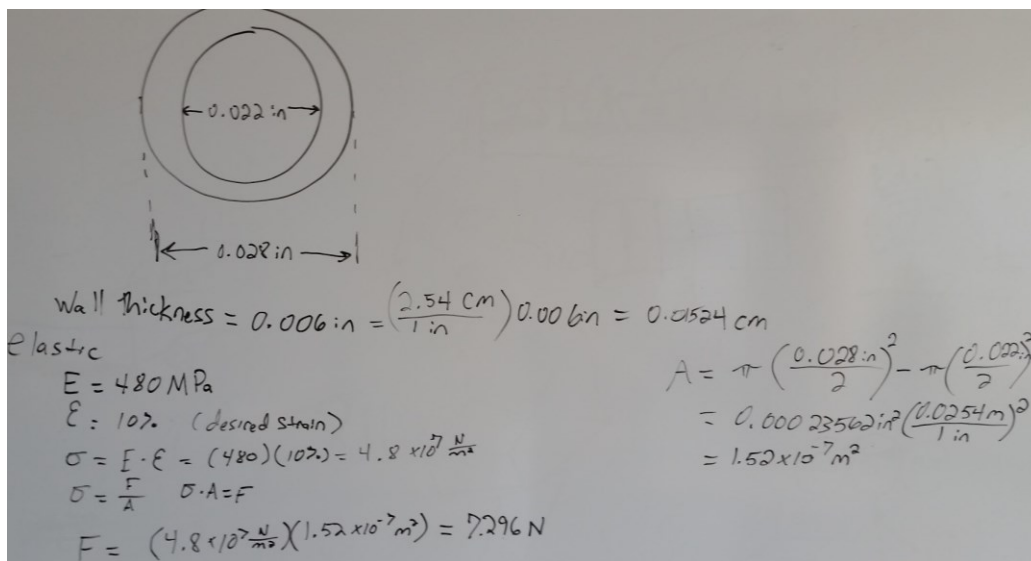 0.022 in
0.028 in
Wall thickness = 0.006 in = (2.54 cm / 1 in) 0.006in = 0.01524 cm
elastic
E = 480 MPa
ε = 10% (desired strain)
σ = E · ε = (480)(10%) = 4.8 × 10⁷ N/m²
σ = F/A σ · A = F
F = (4.8 × 10⁷ N/m²)(1.52 × 10⁻⁷ m²) = 7.296 N
A = π (0.028 in / 2)² - π (0.022in / 2)²
= 0.00023562 in² (0.0254 m / 1 in)²
= 1.52 × 10⁻⁷ m²